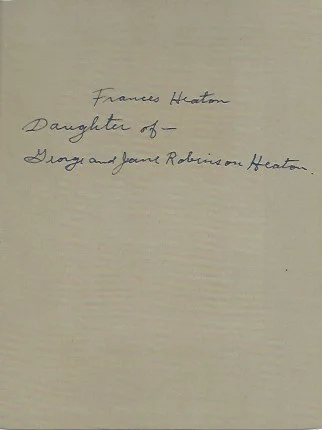 Frances Heaton
Daughter of—
George and Jane Robinson Heaton.